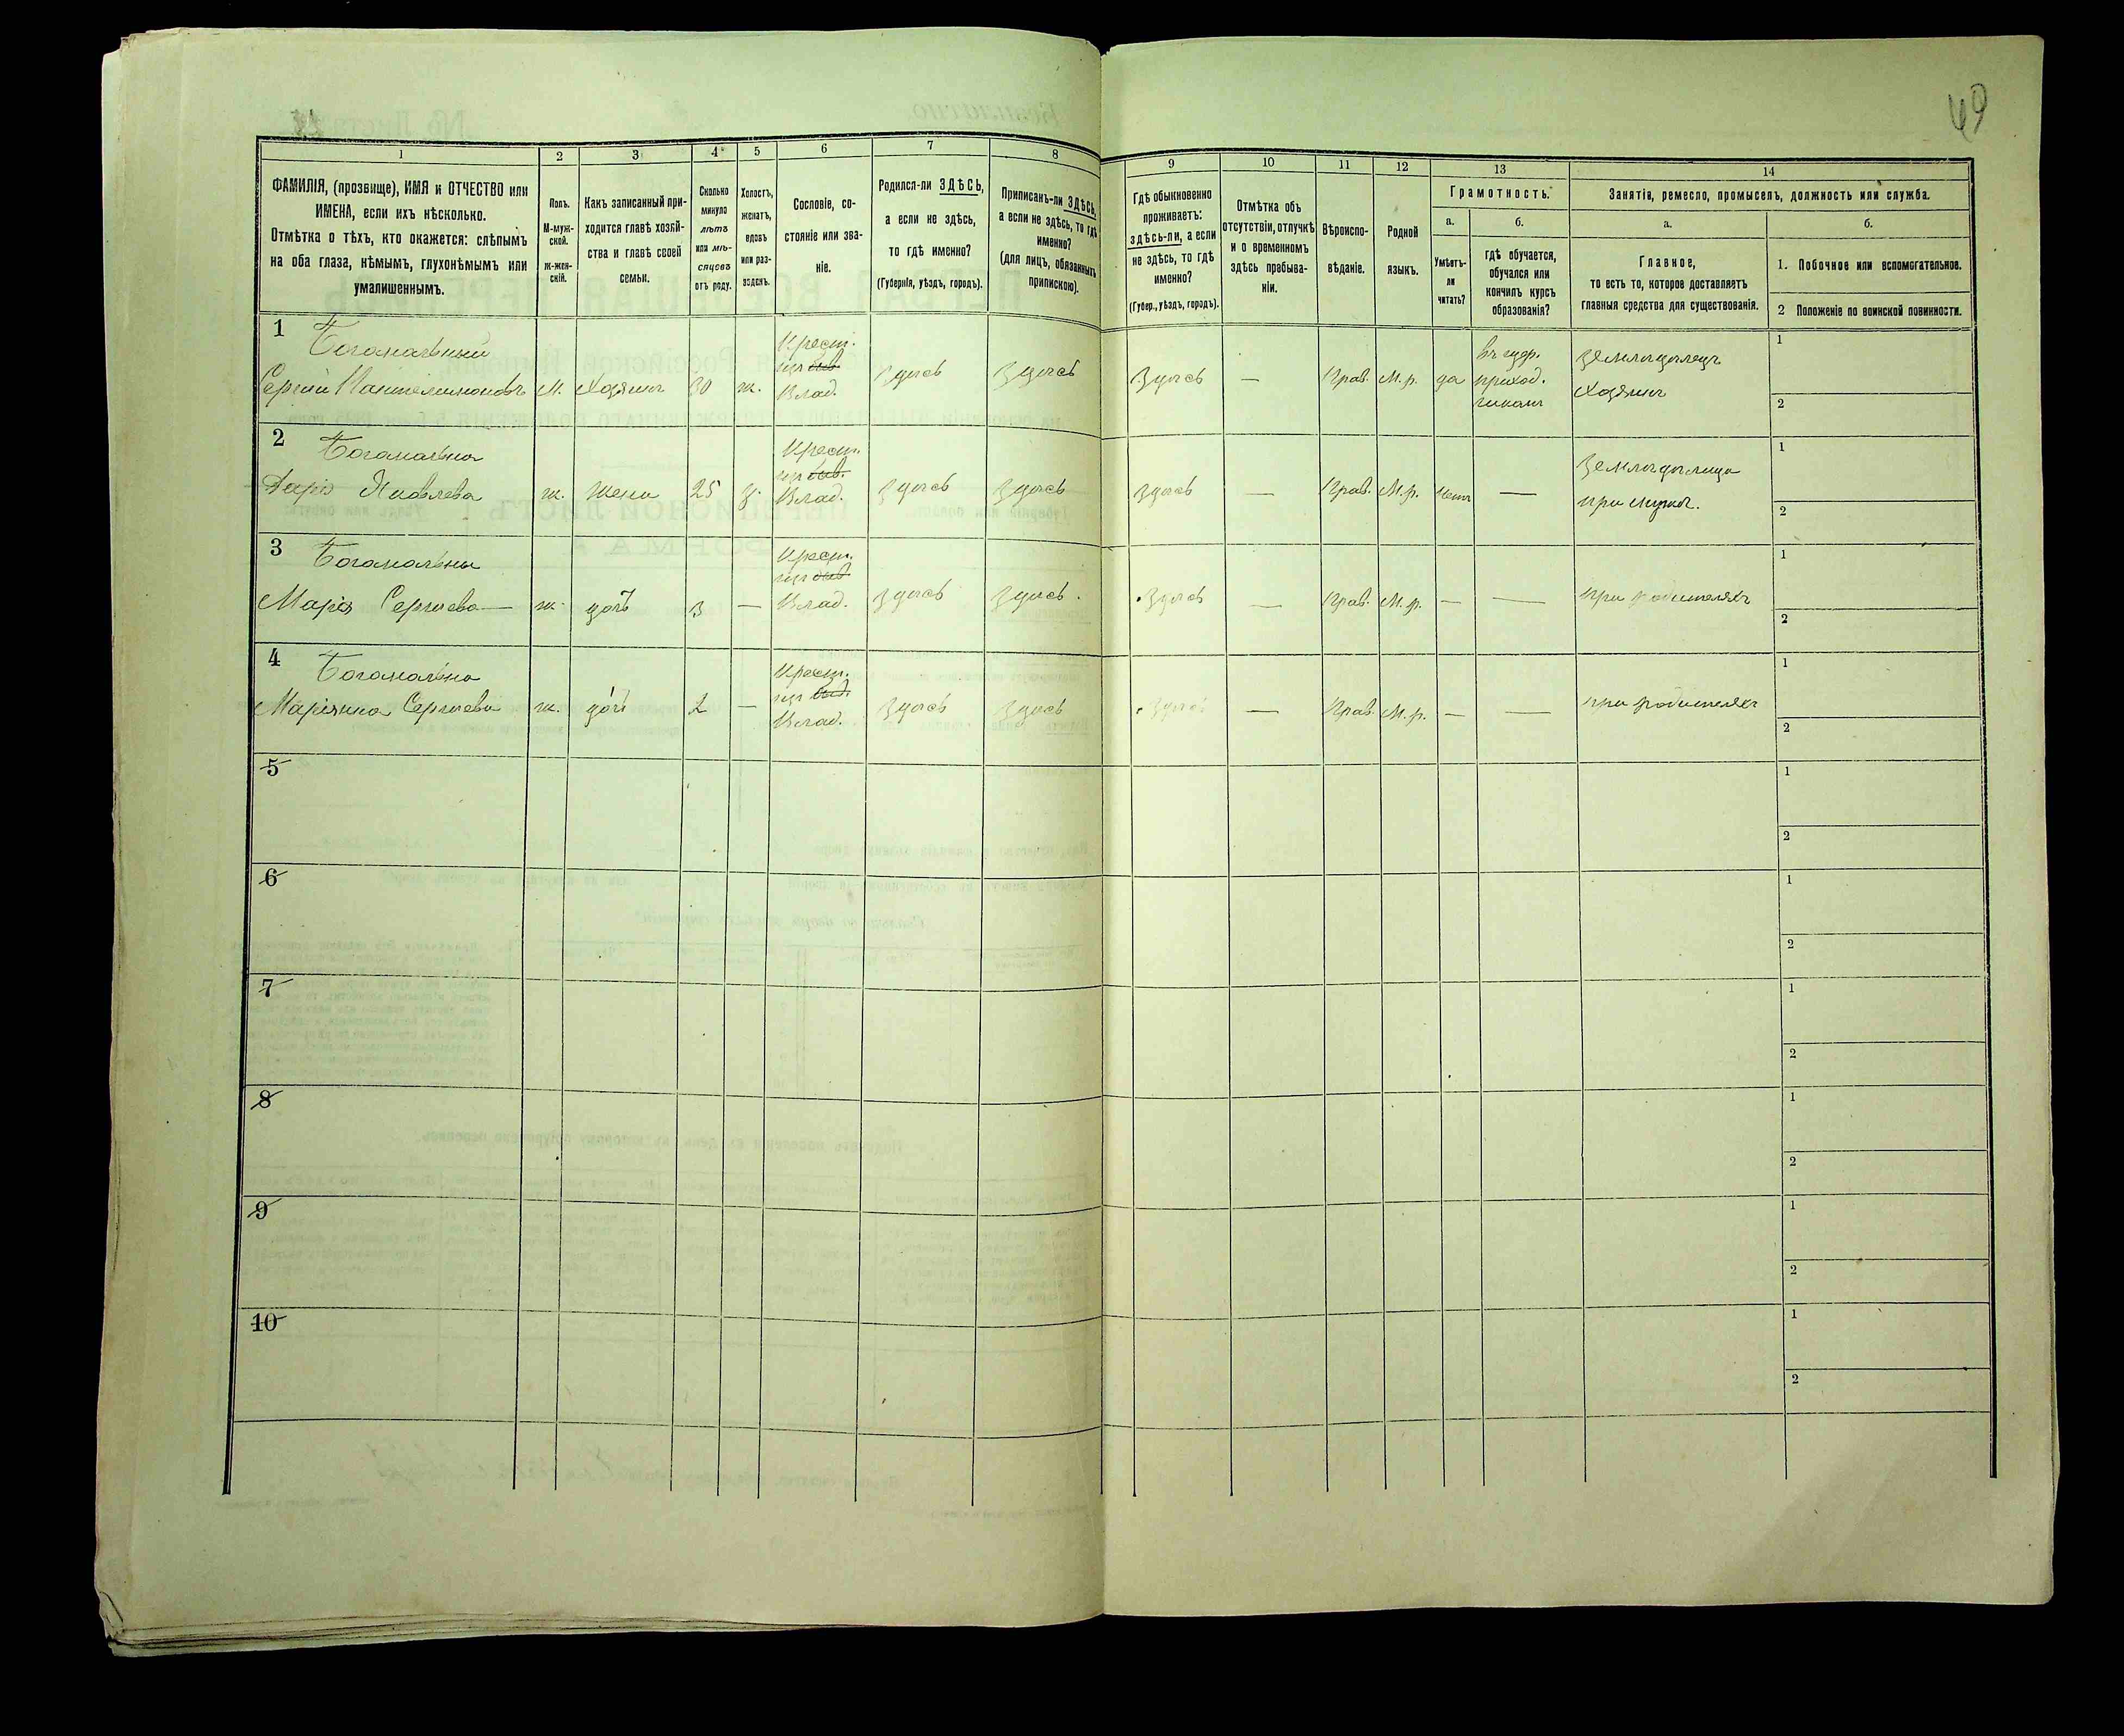 49
1 2 3 4 5 6 7 8 9 10 11 12 13 14
ФАМИЛІЯ, (прозвище), ИМЯ и ОТЧЕСТВО или
ИМЕНА, если ихъ нѣсколько.
Отмѣтка о тѣхъ, кто окажется: слѣпымъ
на оба глаза, нѣмымъ, глухонѣмымъ или
умалишеннымъ.
Полъ.
М-муж-
ской.
Ж-жен-
скій.
Какъ записанный при-
ходится главѣ хозяй-
ства и главѣ своей
семьи.
Сколько
минуло
лѣтъ
или мѣ-
сяцевъ
отъ роду.
Холостъ,
женатъ,
вдовъ
или раз-
веденъ.
Сословіе, со-
стояніе или зва-
ніе.
Родился-ли ЗДѢСЬ,
а если не здѣсь,
то гдѣ именно?
(Губернія, уѣздъ, городъ).
Приписанъ-ли ЗДѢСЬ,
а если не здѣсь, то гдѣ
именно?
(для лицъ, обязанныхъ
припискою).
Гдѣ обыкновенно
проживаетъ:
здѣсь-ли, а если
не здѣсь, то гдѣ
именно?
(Губер., уѣздъ, городъ).
Отмѣтка объ
отсутствіи, отлучкѣ
и о временномъ
здѣсь пребыва-
ніи.
Вѣроиспо-
вѣданіе.
Родной
языкъ.
Грамотность.
а.
Умѣетъ-
ли
читать?
б.
гдѣ обучается,
обучался или
кончилъ курсъ
образованія?
Занятія, ремесло, промыселъ, должность или служба.
а.
Главное,
то есть то, которое доставляетъ
главныя средства для существованія.
б.
1. Побочное или вспомогательное.
2 Положеніе по воинской повинности.
1
Сергій Пантелимоновъ М. Хозяинъ 30 ж. Крест. Влад. Здѣсь Здѣсь Здѣсь — Прав. М. р. да
приход.
земледѣлецъ
Хозяинъ
1
2
2
Дарія Яковлева ж. жена 25 Крест. Влад. Здѣсь Здѣсь Здѣсь — Прав. М. р. нѣтъ —
при мужѣ.
1
2
3
Марія Сергѣева — ж. дочь 3 — Крест. Влад. Здѣсь Здѣсь. Здѣсь — Прав. М. р. — — при родителяхъ
1
2
4
Маріянна Сергѣева ж. дочь 2 — Крест. Влад. Здѣсь Здѣсь Здѣсь — Прав. М. р. — — при родителяхъ
1
2
5
1
2
6
1
2
7
1
2
8
1
2
9
1
2
10
1
2